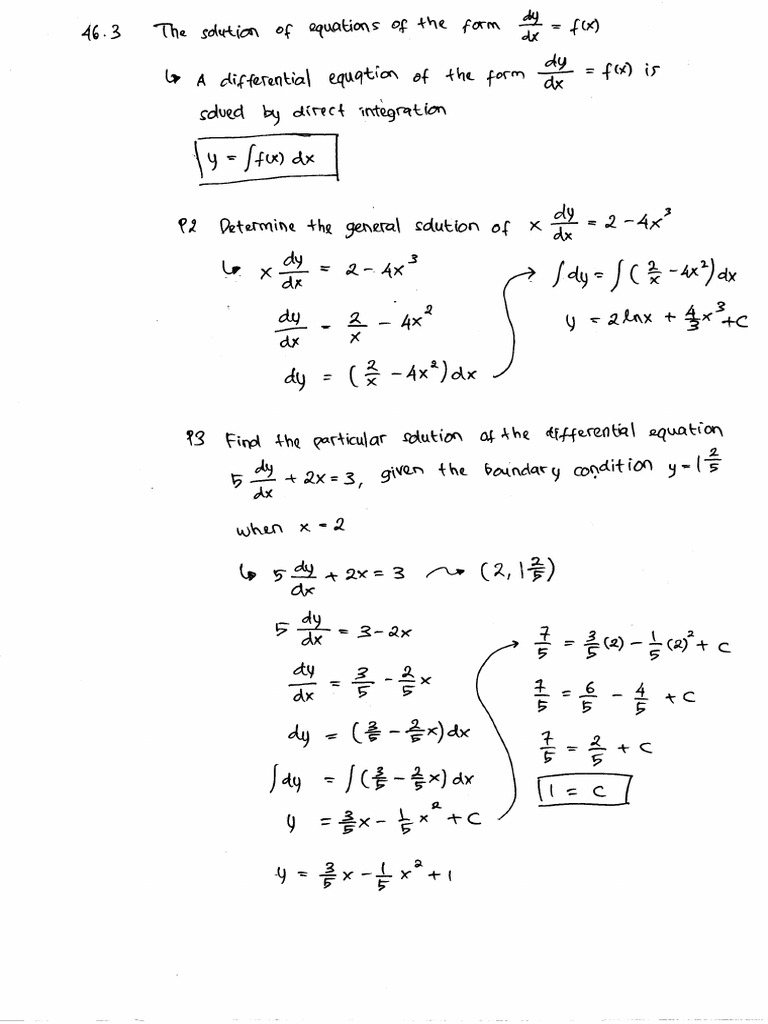 46.3 The solution of equations of the form dy/dx = f(x)
↳ A differential equation of the form dy/dx = f(x) is
solved by direct integration
y = ∫f(x) dx
P2 Determine the general solution of x dy/dx = 2 - 4x³
↳ x dy/dx = 2 - 4x³
dy/dx = 2/x - 4x²
dy = (2/x - 4x²) dx
∫dy = ∫(2/x - 4x²) dx
y = 2 lnx + 4/3 x³ + C
P3 Find the particular solution of the differential equation
5 dy/dx + 2x = 3, given the boundary condition y = 1 2/5
when x = 2
↳ 5 dy/dx + 2x = 3 ⤳ (2, 1 2/5)
5 dy/dx = 3 - 2x
dy/dx = 3/5 - 2/5 x
dy = (3/5 - 2/5 x) dx
∫dy = ∫(3/5 - 2/5 x) dx
y = 3/5 x - 1/5 x² + C
7/5 = 3/5 (2) - 1/5 (2)² + C
7/5 = 6/5 - 4/5 + C
7/5 = 2/5 + C
1 = C
y = 3/5 x - 1/5 x² + 1